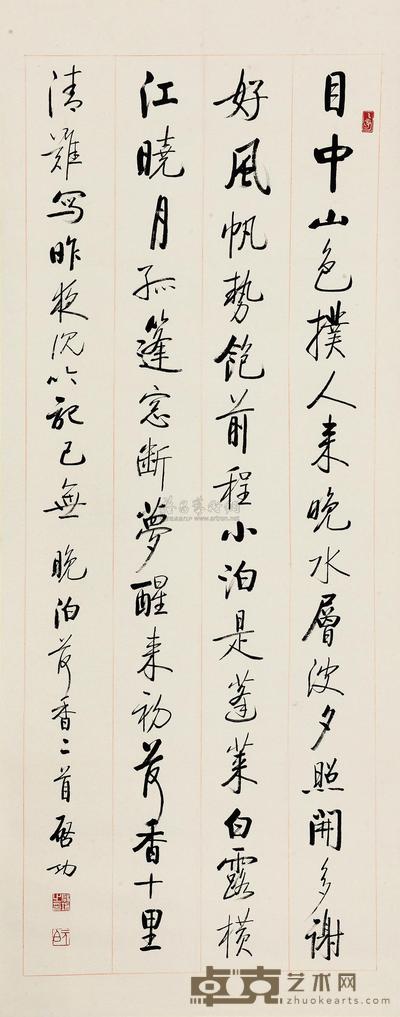 目中山色撲人来晚水層波夕照開多謝
好風帆勢飽前程小泊是蓬莱白露横
江曉月孤篷窓断夢醒来初荷香十里
清難写昨夜沉吟記已無 晚泊荷香二首 啓功
卓克艺术网
zhuokearts.com